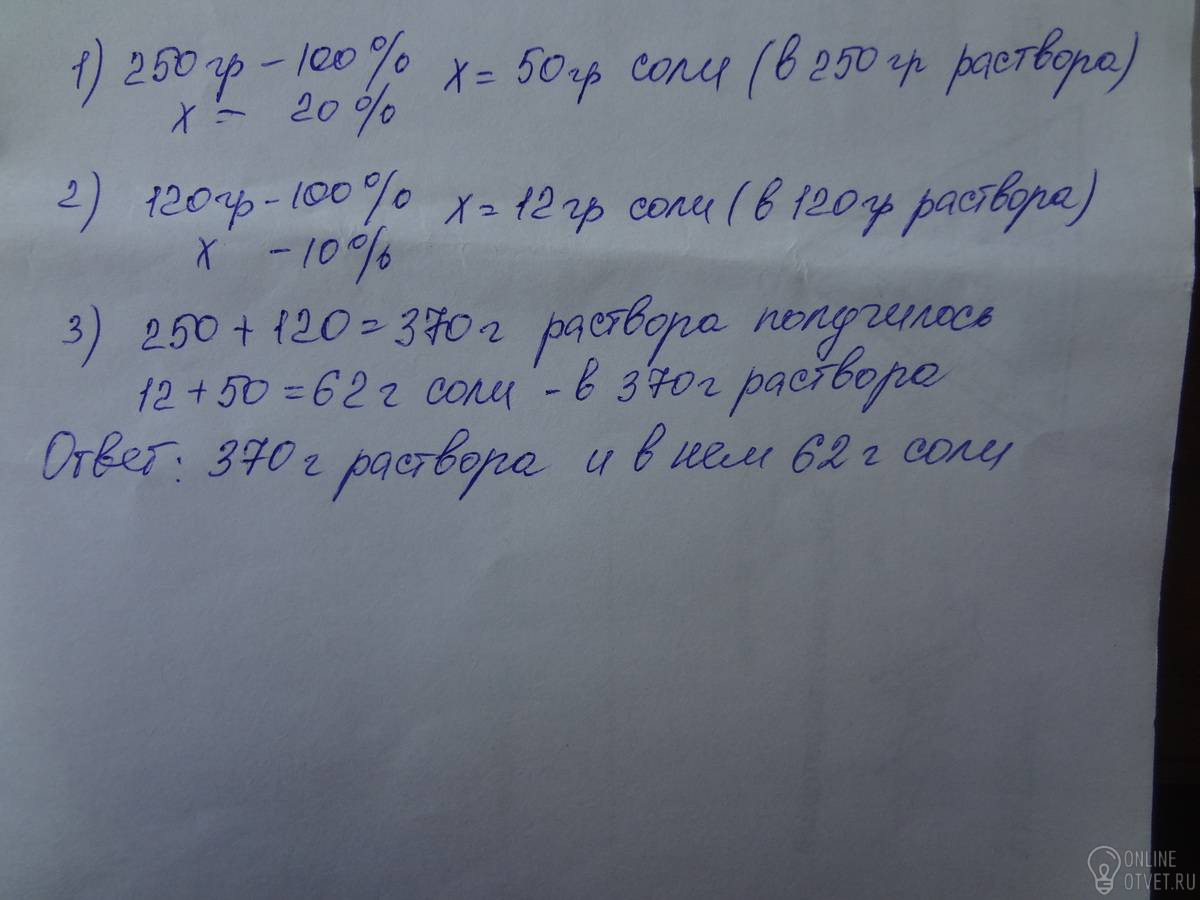 1) 250гр - 100% x = 50гр соли (в 250гр раствора)
x - 20%
2) 120гр - 100% x = 12гр соли (в 120гр раствора)
x - 10%
3) 250 + 120 = 370г раствора получилось
12 + 50 = 62г соли - в 370г раствора
Ответ: 370г раствора и в нем 62г соли
ONLINE
OTVET.RU